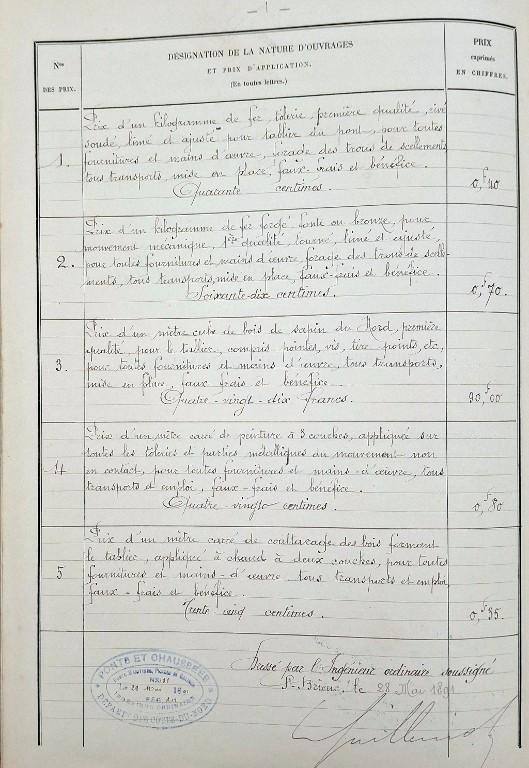 — 1 —
Nos
DES PRIX.
DÉSIGNATION DE LA NATURE D'OUVRAGES
ET PRIX D'APPLICATION.
(En toutes lettres.)
PRIX
exprimés
EN CHIFFRES.
1.
Prix d'un kilogramme de fer, tôlerie, première qualité, rivé
soudé, limé et ajusté pour tablier du pont, pour toutes
fournitures et mains d'œuvre, forage des trous de scellements
tous transports, mise en place, faux-frais et bénéfice.
Quarante centimes.
0,f40
2.
Prix d'un kilogramme de fer forgé, fonte ou bronze, pour
mouvement mécanique, 1ère qualité, tourné, limé et ajusté,
pour toutes fournitures et mains d'œuvre, forage des trous de scelle-
ments, tous transports, mise en place, faux-frais et bénéfice.
Soixante-dix centimes.
0,f70.
3.
Prix d'un mètre cube de bois de sapin du Nord, première
qualité pour le tablier, compris pointes, vis, tire points, etc,
pour toutes fournitures et mains d'œuvre, tous transports,
mise en place, faux frais et bénéfice.
Quatre-vingt-dix francs.
90,f00
4
Prix d'un mètre carré de peinture à 3 couches, appliquée sur
toutes les tôleries et parties métalliques du mouvement non
en contact, pour toutes fournitures et mains-d'œuvre, tous
transports et emploi, faux-frais et bénéfice.
Quatre-vingts centimes.
0,f80
5
Prix d'un mètre carré de coaltarage des bois formant
le tablier, appliqué à chaud à deux couches, pour toutes
fournitures et mains-d'œuvre tous transports et emploi
faux-frais et bénéfice.
Trente cinq centimes.
0,f35.
Dressé par l'Ingénieur ordinaire soussigné
St-Brieuc, le 28 Mai 1891
PONTS ET CHAUSSÉES
Le 28 Mai 1891
INGÉNIEUR ORDINAIRE
DÉPART. DES CÔTES-DU-NORD